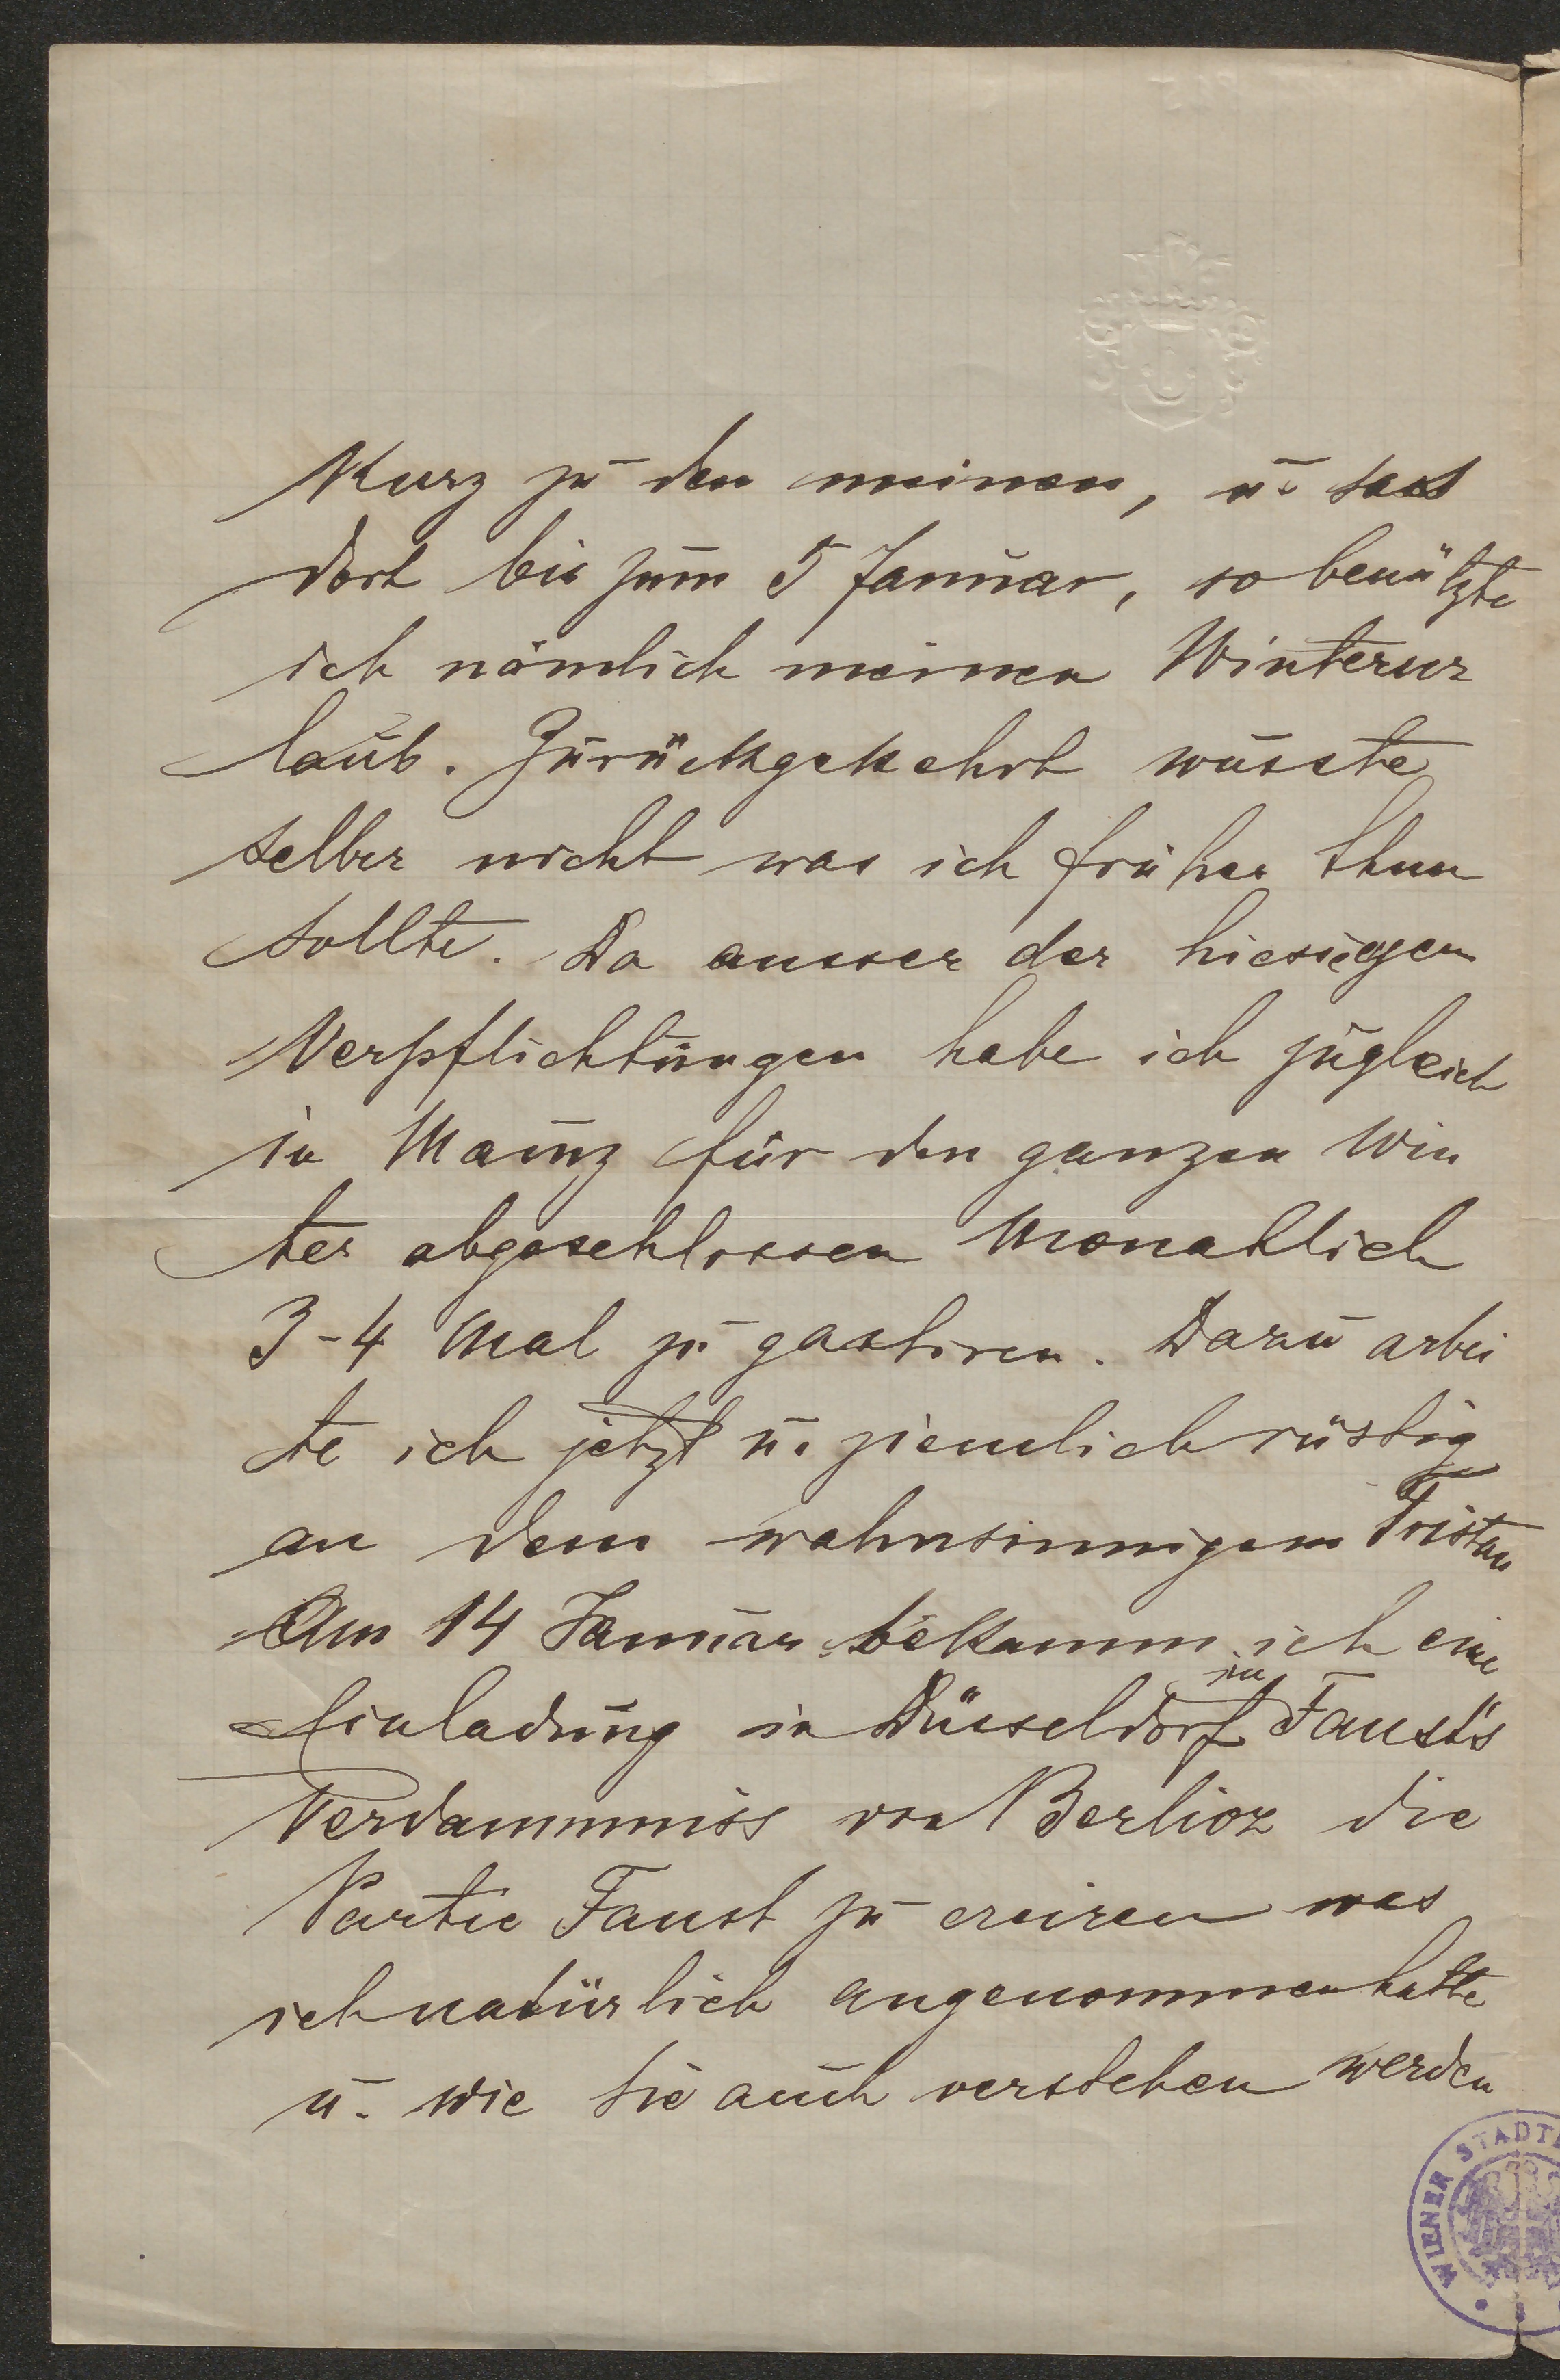 Kurz zu den meinen, u. sass
dort bis zum 5 Januar, so benützte
ich nämlich meinen Winterur
laub. Zurückgekehrt wusste
selber nicht was ich früher thun
sollte. Da ausser der hiesigen
Verpflichtungen habe ich zugleich
in Mainz für den ganzen Win
ter abgeschlossen Monatlich
3-4 Mal zu gastiren. Dazu arbei
te ich jetzt u. ziemlich rüstig
an dem wahnsinnigem Tristan
Am 14 Januar bekamm ich eine
Einladung in Düsseldorf in Faust's
Verdammniss von Berlioz die
Partie Faust zu creiren was
ich natürlich angenommen hatte
u. wie Sie auch verstehen werden
WIENER STADT